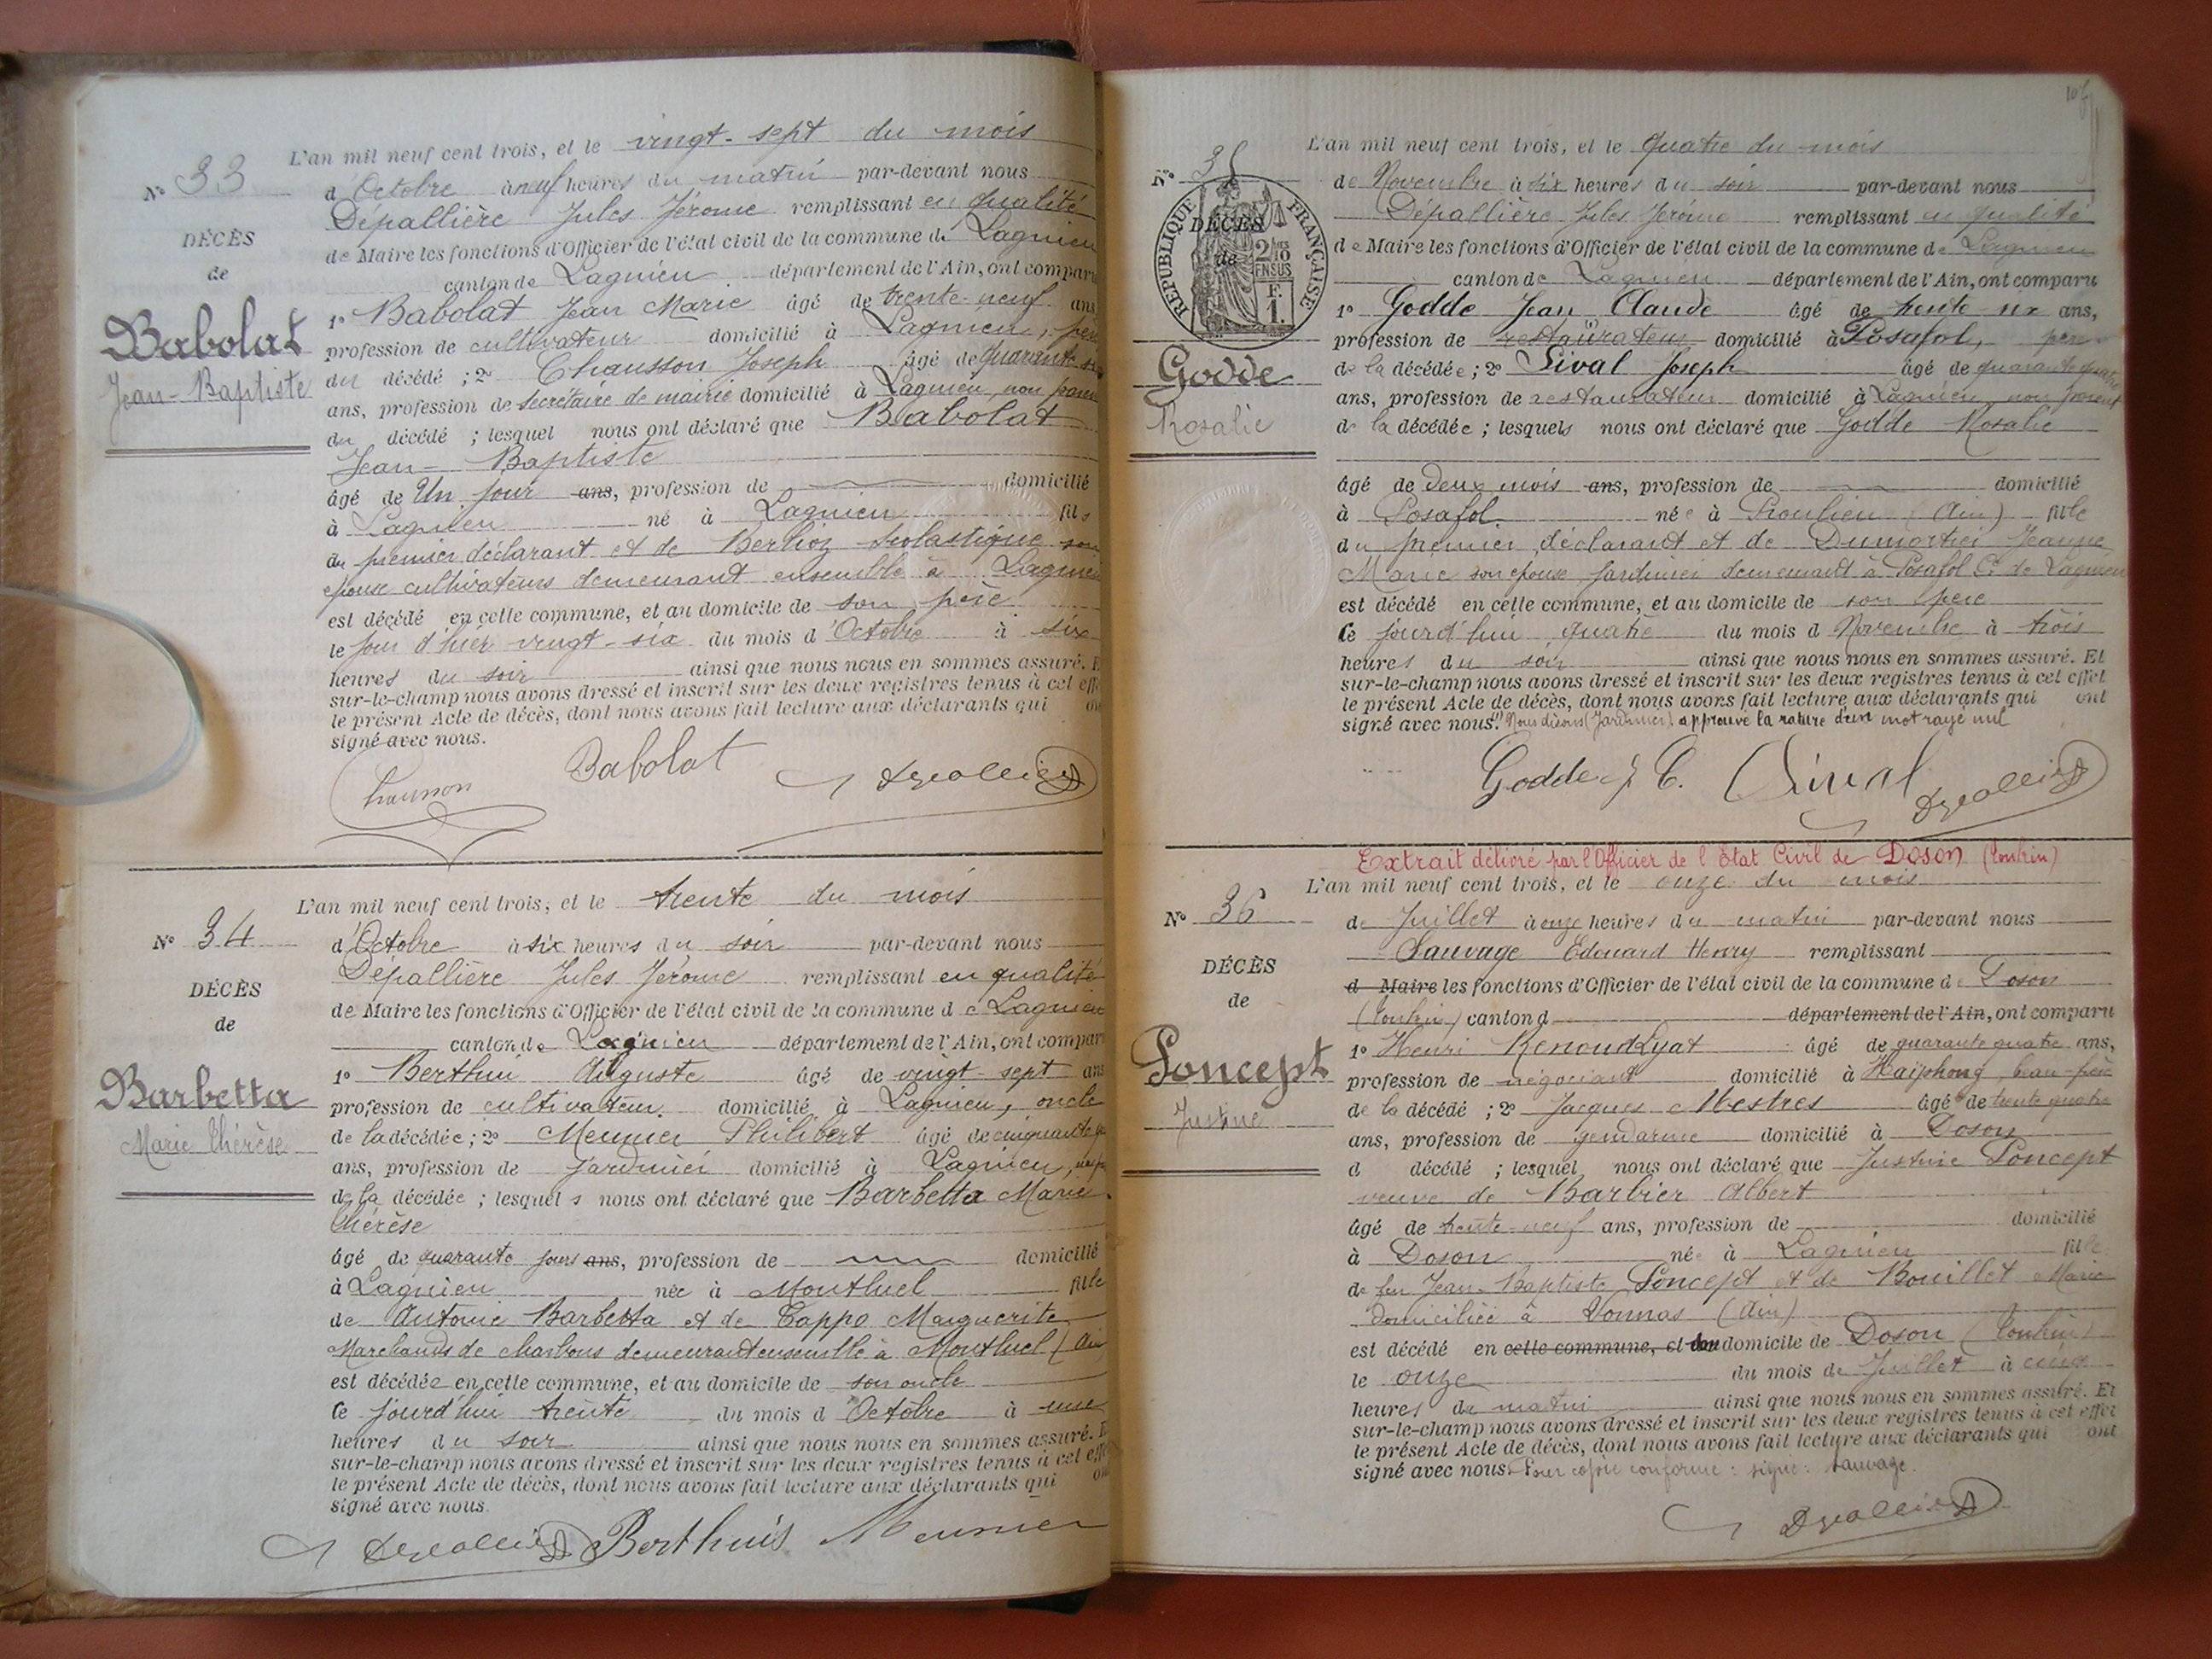 L'an mil neuf cent trois, et le vingt-sept du mois
N° 33
d'Octobre à neuf heures du matin par-devant nous
Dépallière Jules Jérome remplissant en qualité
DÉCÈS
de Maire les fonctions d'Officier de l'état civil de la commune de Lagnieu
de
canton de Lagnieu département de l'Ain, ont comparu
Babolat
Jean-Baptiste
1° Babolat Jean Marie âgé de trente-neuf ans
profession de cultivateur domicilié à Lagnieu, père
du décédé ; 2° Chausson Joseph âgé de quarante six
ans, profession de secrétaire de mairie domicilié à Lagnieu, non parent
du décédé ; lesquel nous ont déclaré que Babolat
Jean-Baptiste
âgé de Un jour ans, profession de domicilié
à Lagnieu né à Lagnieu fils
du premier déclarant et de Berlioz Scolastique son
épouse cultivateurs demeurant ensemble à Lagnieu
est décédé en cette commune, et au domicile de son père
le jour d'hier vingt-six du mois d'Octobre à six
heures du soir ainsi que nous nous en sommes assuré. E
sur-le-champ nous avons dressé et inscrit sur les deux registres tenus à cet eff
le présent Acte de décès, dont nous avons fait lecture aux déclarants qui on
signé avec nous.
Chausson Babolat Depallière
L'an mil neuf cent trois, et le trente du mois
N° 34
d'Octobre à six heures du soir par-devant nous
Dépallière Jules Jérome remplissant en qualité
DÉCÈS
de Maire les fonctions d'Officier de l'état civil de la commune de Lagnieu
de
canton de Lagnieu département de l'Ain, ont comparu
Barbetta
Marie Thérèse
1° Berthui Auguste âgé de vingt-sept ans
profession de cultivateur domicilié à Lagnieu, oncle
de la décédée ; 2° Meunier Philibert âgé de cinquante
ans, profession de jardinier domicilié à Lagnieu,
de la décédée ; lesquels nous ont déclaré que Barbetta Marie
Thérèse
âgé de quarante jours ans, profession de domicilié
à Lagnieu née à Montluel fille
de Antoine Barbetta et de Cappo Marguerite
Marchands de charbons demeurant ensemble à Montluel (Ain
est décédée en cette commune, et au domicile de son oncle
Ce jourd'hui trente du mois d'Octobre à une
heures du soir ainsi que nous nous en sommes assuré. E
sur-le-champ nous avons dressé et inscrit sur les deux registres tenus à cet eff
le présent Acte de décès, dont nous avons fait lecture aux déclarants qui on
signé avec nous.
Depallière Berthuis Meunier
L'an mil neuf cent trois, et le quatre du mois
N° 35
de Novembre à six heures du soir par-devant nous
RÉPUBLIQUE FRANÇAISE
2/10 EN SUS
F. 1.
Dépallière Jules Jérome remplissant en qualité
DÉCÈS
de Maire les fonctions d'Officier de l'état civil de la commune de Lagnieu
de
canton de Lagnieu département de l'Ain, ont comparu
Godde
Rosalie
1° Godde Jean Claude âgé de trente six ans,
profession de restaurateur domicilié à Posafol, père
de la décédée ; 2° Sival Joseph âgé de quarante quatre
ans, profession de restaurateur domicilié à Lagnieu non parent
de la décédée ; lesquels nous ont déclaré que Godde Rosalie
âgé de deux mois ans, profession de domicilié
à Posafol née à Proulieu (Ain) fille
du premier déclarant et de Dumortier Jeanne
Marie son épouse jardinier demeurant à Posafol Cne de Lagnieu
est décédé en cette commune, et au domicile de son père
Ce jourd'hui quatre du mois d Novembre à trois
heures du soir ainsi que nous nous en sommes assuré. Et
sur-le-champ nous avons dressé et inscrit sur les deux registres tenus à cet effet
le présent Acte de décès, dont nous avons fait lecture aux déclarants qui ont
signé avec nous. Nous disons (Jardinier) approuve la rature d'un mot rayé nul
Godde J. C. Sival Depallière
Extrait délivré par l'Officier de l'Etat Civil de Doson (Tonkin)
L'an mil neuf cent trois, et le onze du mois
N° 36
de Juillet à onze heures du matin par-devant nous
Sauvage Edouard Henry remplissant
DÉCÈS
d Maire les fonctions d'Officier de l'état civil de la commune de Doson
de
(Tonkin) canton d département de l'Ain, ont comparu
Poncept
Justine
1° Henri Renoud Lyat âgé de quarante quatre ans,
profession de négociant domicilié à Haiphong, beau-frère
de la décédé ; 2° Jacques Mestres âgé de trente quatre
ans, profession de gendarme domicilié à Doson
d décédé ; lesquel nous ont déclaré que Justine Poncept
veuve de Barbier Albert
âgé de trente-neuf ans, profession de domicilié
à Doson née à Lagnieu fille
de feu Jean-Baptiste Poncept et de Bouillet Marie
domiciliée à Vonnas (Ain)
est décédé en cette commune, et au domicile de Doson (Tonkin)
le onze du mois de Juillet à cinq
heures du matin ainsi que nous nous en sommes assuré. Et
sur-le-champ nous avons dressé et inscrit sur les deux registres tenus à cet effet
le présent Acte de décès, dont nous avons fait lecture aux déclarants qui ont
signé avec nous. Pour copie conforme : signé : Sauvage.
Depallière